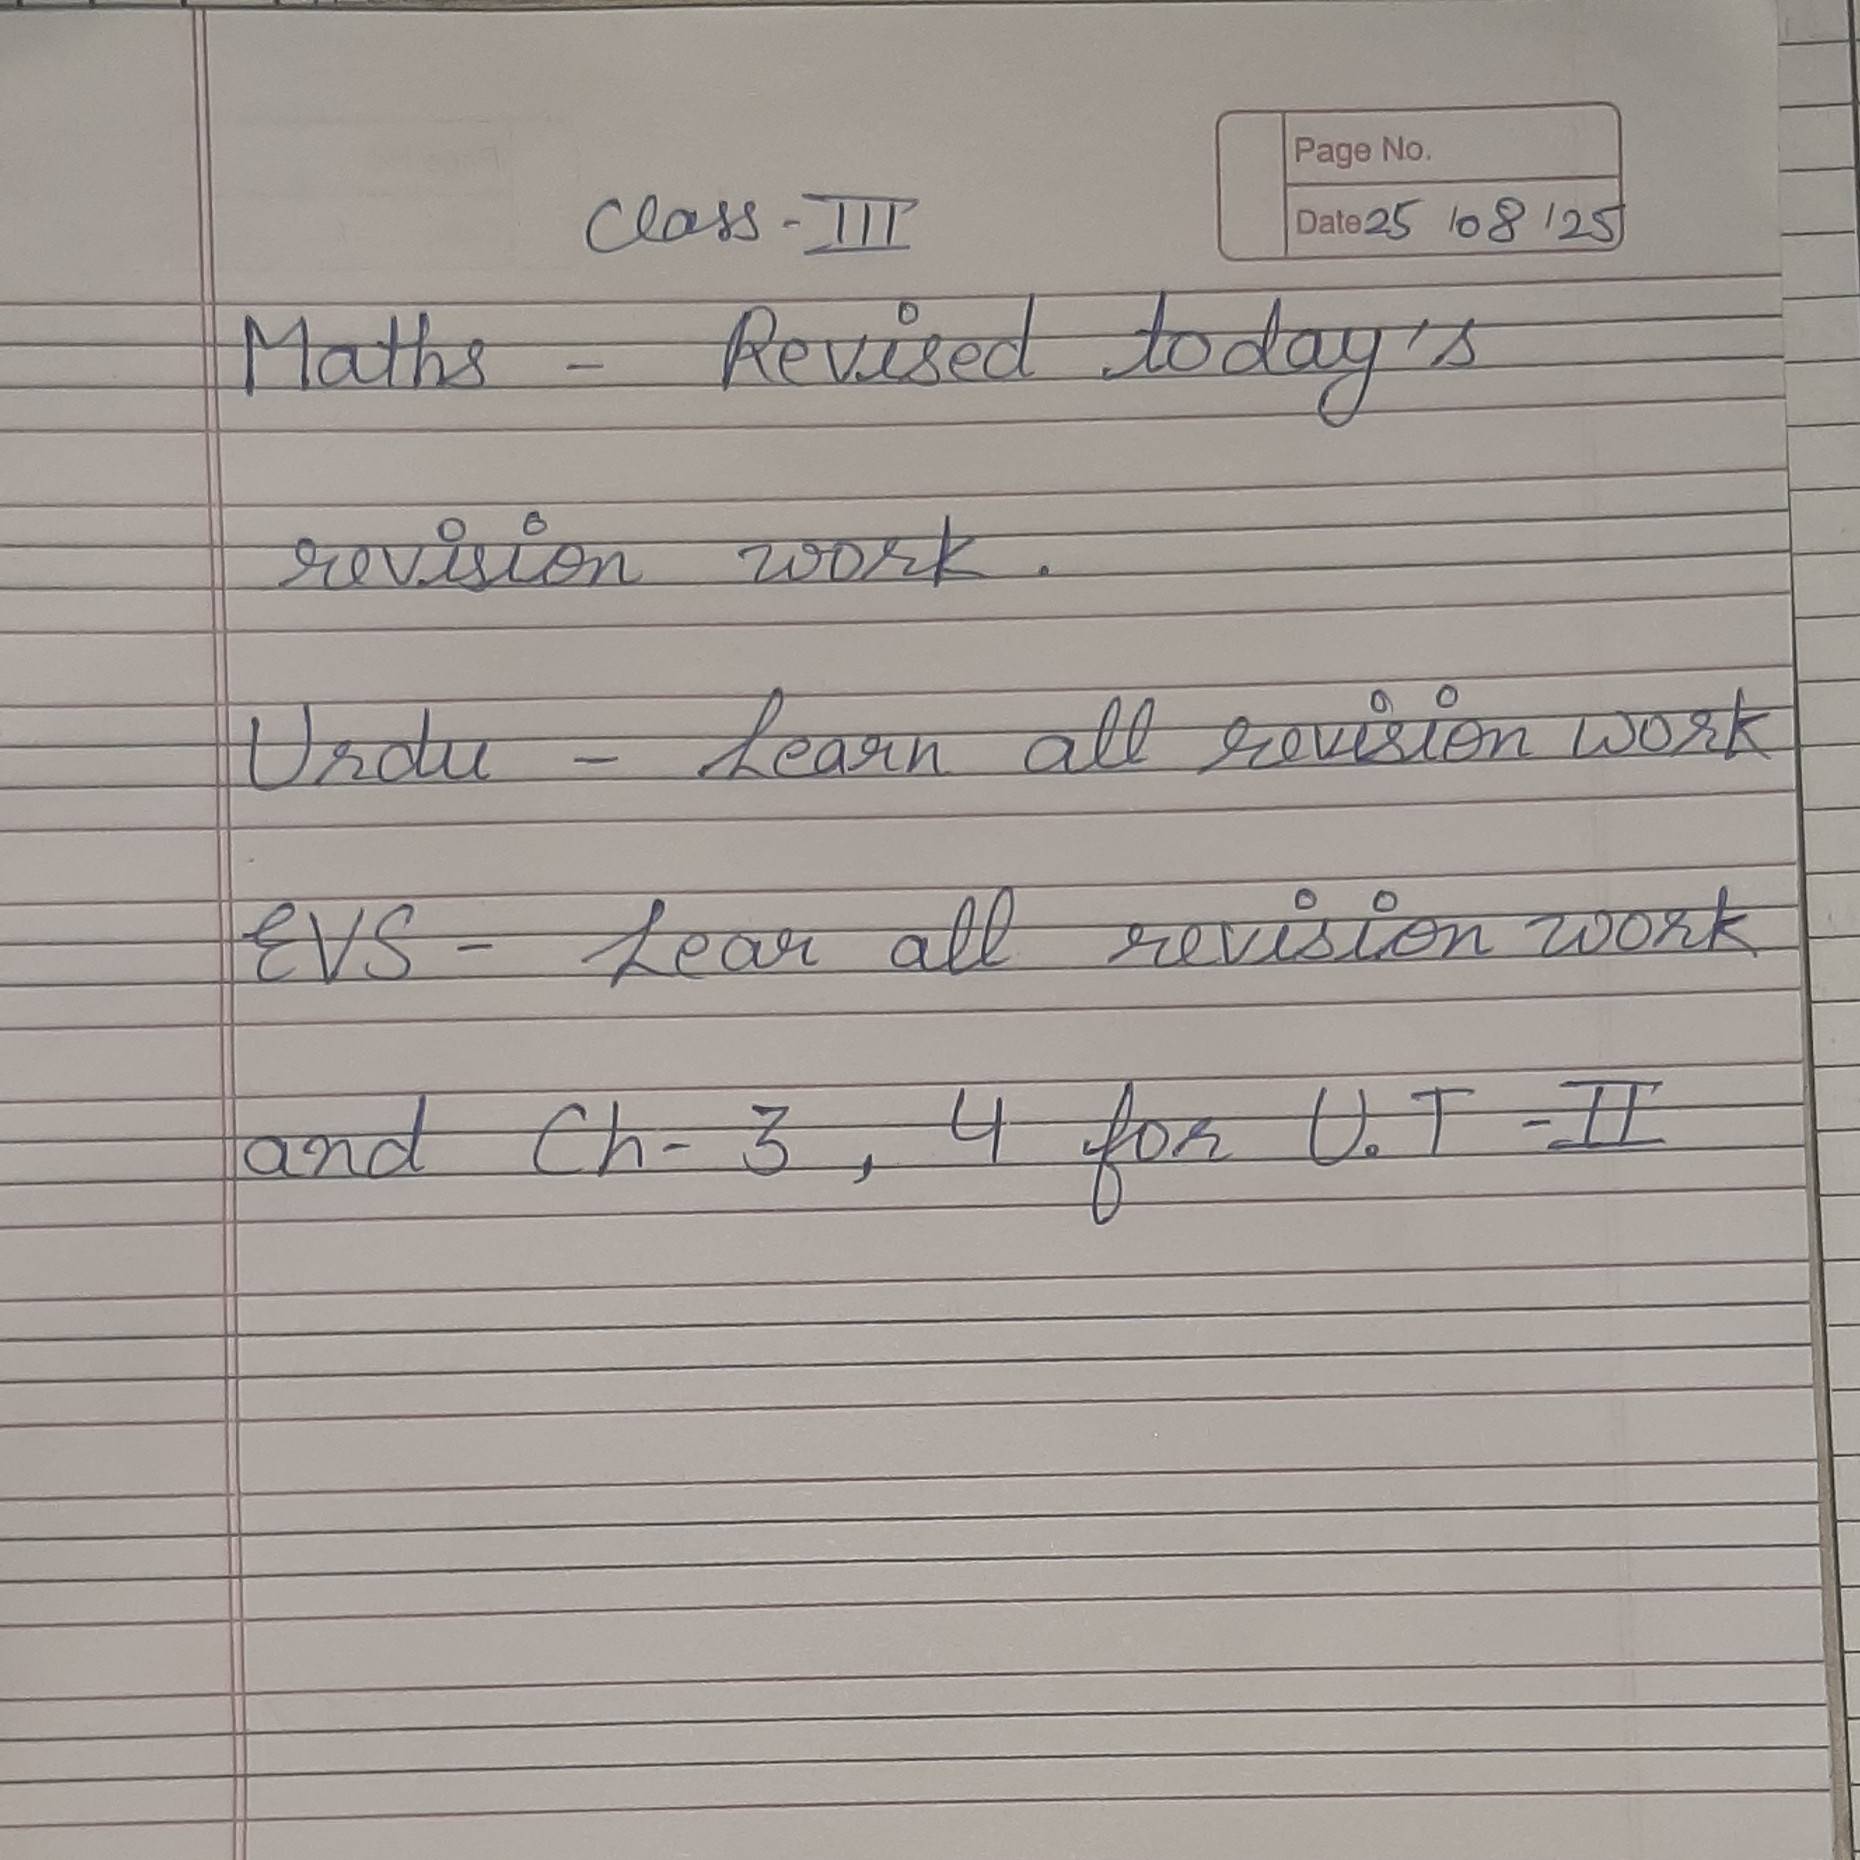 Page No.
Class - III
Date 25/08/25
Maths - Revised today's
revision work.
Urdu - Learn all revision work
EVS - Lear all revision work
and Ch- 3, 4 for U.T - II